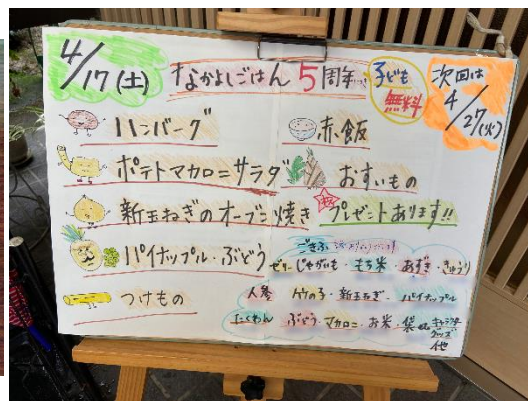 4/17(土)
なかよしごはん 5周年
子ども
無料
次回は
4/27(火)
ハンバーグ
赤飯
ポテトマカロニサラダ
おすいもの
新玉ねぎのオーブン焼き
プレゼントあります!!
パイナップル・ぶどう
つけもの
ゼリー・じゃがいも・もち米・あずき・きゅうり
人参 竹の子・新玉ねぎ・パイナップル
たくわん ぶどう・マカロニ・お米・袋
キャラクターグッズ
他